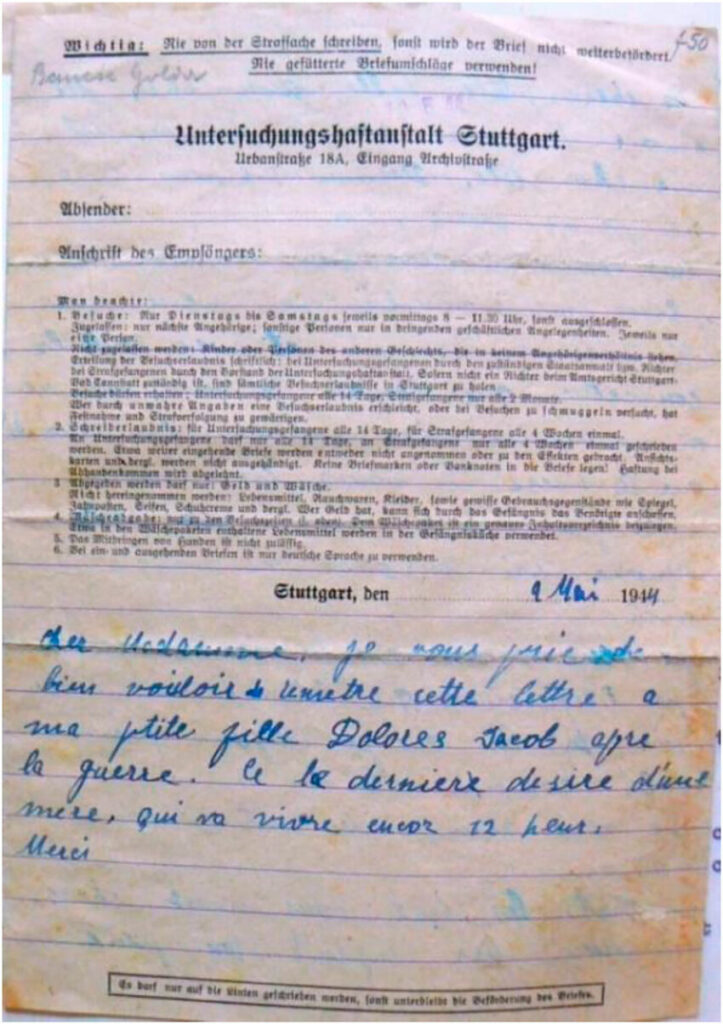 Wichtig: Nie von der Strafsache schreiben, sonst wird der Brief nicht weiterbefördert.
Nie gefütterte Briefumschläge verwenden!
Untersuchungshaftanstalt Stuttgart.
Urbanstraße 18A, Eingang Archivstraße
Absender:
Anschrift des Empfängers:
Man beachte:
1. Besuche: Nur Dienstags bis Samstags jeweils vormittags 8 — 11.30 Uhr, sonst ausgeschlossen.
Zugelassen: nur nächste Angehörige; sonstige Personen nur in dringenden geschäftlichen Angelegenheiten. Jeweils nur
eine Person.
Nicht zugelassen werden: Kinder oder Personen des anderen Geschlechts, die in keinem Angehörigenverhältnis stehen.
Erteilung der Besuchserlaubnis schriftlich: bei Untersuchungsgefangenen durch den zuständigen Staatsanwalt bzw. Richter
bei Strafgefangenen durch den Vorstand der Untersuchungshaftanstalt. Sofern nicht ein Richter beim Amtsgericht Stuttgart-
Bad Cannstatt zuständig ist, sind sämtliche Besuchserlaubnisse in Stuttgart zu holen
Besuche dürfen erhalten: Untersuchungsgefangene alle 14 Tage, Strafgefangene nur alle 2 Monate.
Wer durch unwahre Angaben eine Besuchserlaubnis erschleicht, oder bei Besuchen zu schmuggeln versucht, hat
Festnahme und Strafverfolgung zu gewärtigen.
2. Schreiberlaubnis: für Untersuchungsgefangene alle 14 Tage, für Strafgefangene alle 4 Wochen einmal.
An Untersuchungsgefangene darf nur alle 14 Tage, an Strafgefangene nur alle 4 Wochen einmal geschrieben
werden. Etwa weiter eingehende Briefe werden entweder nicht angenommen oder zu den Effekten gebracht. Ansichts-
karten und dergl. werden nicht ausgehändigt. Keine Briefmarken oder Banknoten in die Briefe legen! Haftung bei
Abhandenkommen wird abgelehnt.
3 Abgegeben werden darf nur: Geld und Wäsche.
Nicht hereingenommen werden: Lebensmittel, Rauchwaren, Kleider, sowie gewisse Gebrauchsgegenstände wie Spiegel,
Zahnpasten, Seifen, Schuhcreme und dergl. Wer Geld hat, kann sich durch das Gefängnis das Benötigte anschaffen.
4. Wäscheabgabe: nur zu den Besuchszeiten (s. oben). Dem Wäschepaket ist ein genaues Inhaltsverzeichnis beizulegen.
Etwa in den Wäschepaketen enthaltene Lebensmittel werden in der Gefängnisküche verwendet.
5. Das Mitbringen von Hunden ist nicht zulässig.
6. Bei ein- und ausgehenden Briefen ist nur deutsche Sprache zu verwenden.
Stuttgart, den 9 Mai 1944
cher Madamme, je vous prie de
bien voiloir de remetre cette lettre a
ma ptite fille Dolores Jacob apre
la guerre. Ce le derniere desire d'une
mere, qui va vivre encor 12 heur.
Merci
Es darf nur auf die Linien geschrieben werden, sonst unterbleibt die Beförderung des Briefes.